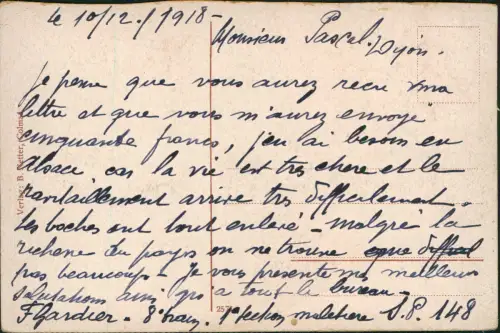 le 10/12./1918-
Monsieur Pascal. Lyon.
Je pense que vous aurez recu ma
lettre et que vous m'aurez envoye
cinquante francs, j'en ai besoin en
Alsace car la vie est tres chere et le
ravitaillement arrive tres difficilement.
les boches ont tout enlevé - malgré la
richesse du pays on ne trouve que
pas beaucoup - je vous presente mes meilleurs
salutations ainsi qu'a tout le bureau -
8e train. 1e section S.P. 148
Verlag: B. Colmar
257